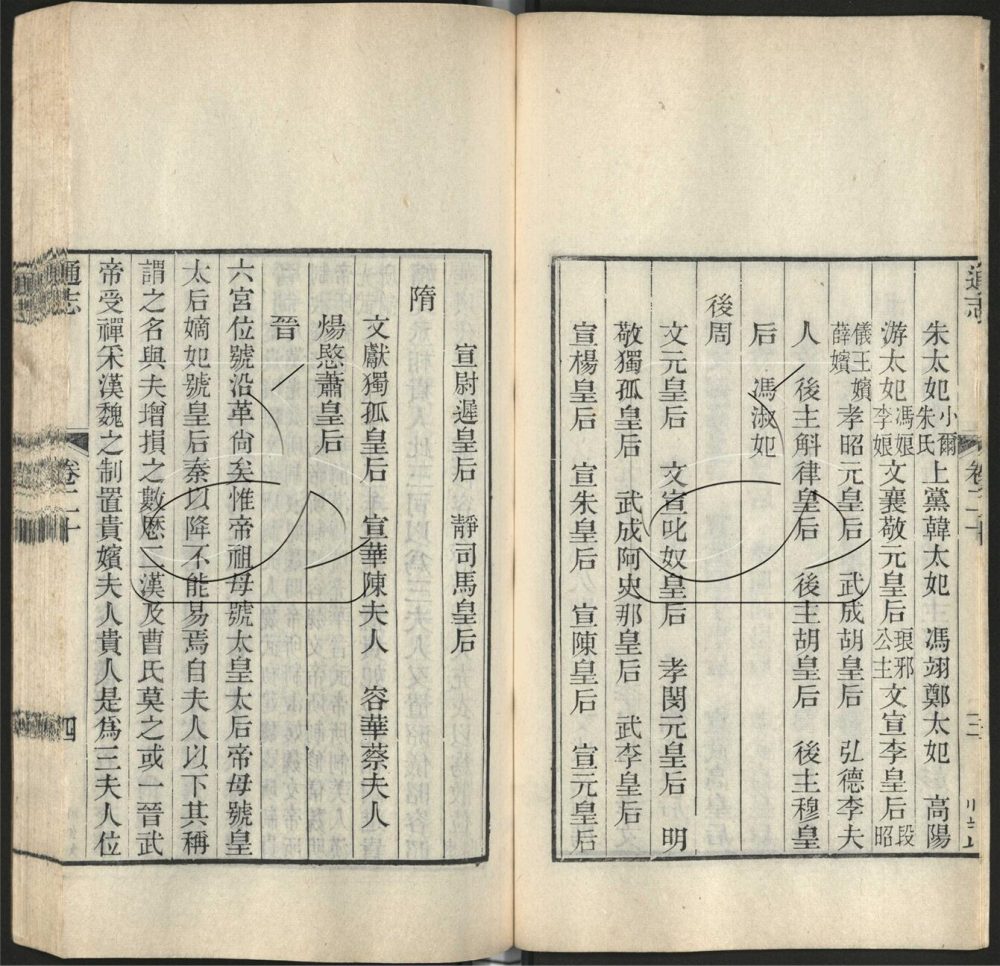 朱太妃 小爾朱氏 上黨韓太妃 馮翊鄭太妃 高陽
游太妃 馮娘李娘 文襄敬元皇后 琅邪公主 文宣李皇后 段昭
儀王嬪薛嬪 孝昭元皇后 武成胡皇后 弘德李夫
人 後主斛律皇后 後主胡皇后 後主穆皇
后 馮淑妃
後周
文元皇后 文宣叱奴皇后 孝閔元皇后 明
敬獨孤皇后 武成阿史那皇后 武李皇后
宣楊皇后 宣朱皇后 宣陳皇后 宣元皇后
通志
卷二十
三
宣尉遲皇后 靜司馬皇后
隋
文獻獨孤皇后 宣華陳夫人 容華蔡夫人
煬愍蕭皇后
晉
六宮位號沿革尙矣惟帝祖母號太皇太后帝母號皇
太后嫡妃號皇后秦以降不能易焉自夫人以下其稱
謂之名與夫增損之數歷二漢及曹氏莫之或一晉武
帝受禪采漢魏之制置貴嬪夫人貴人是爲三夫人位
通志
卷二十
四